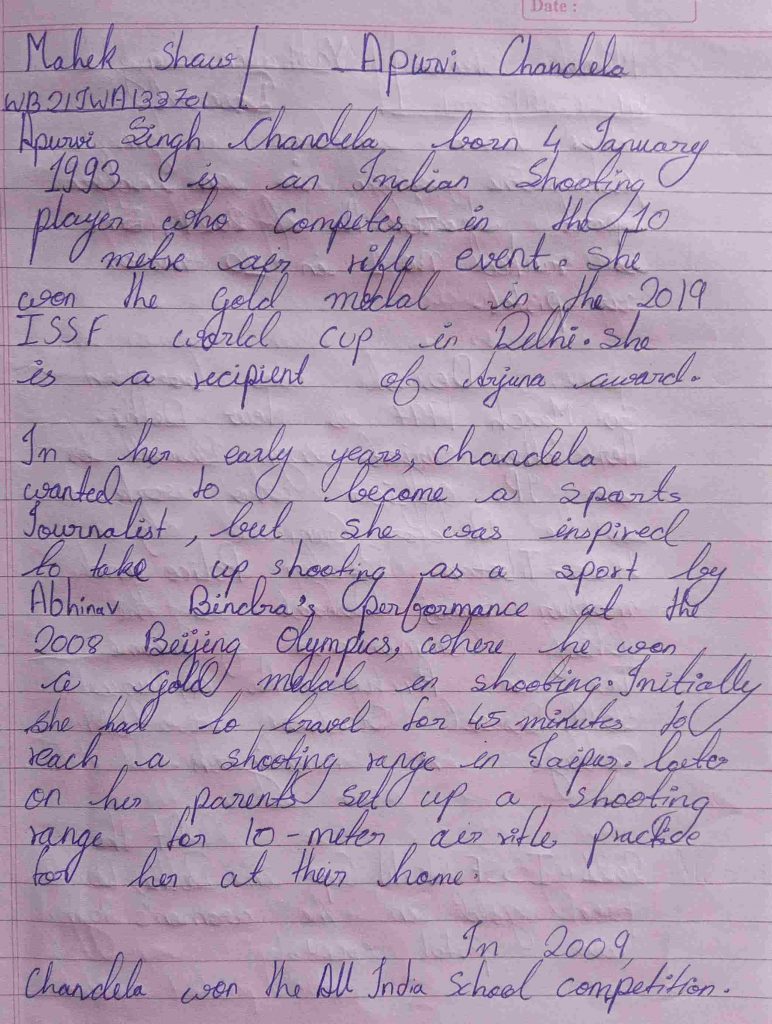 Date :
Mahek Shaw Apurvi Chandela
WB21JWA133701
Apurvi Singh Chandela, born 4 January
1993 is an Indian Shooting
player who competes in the 10
metre air rifle event. She
won the gold medal in the 2019
ISSF world cup in Delhi. She
is a recipient of Arjuna award.
In her early years, Chandela
wanted to become a sports
Journalist, but she was inspired
to take up shooting as a sport by
Abhinav Bindra's performance at the
2008 Beijing Olympics, where he won
a gold medal in shooting. Initially
she had to travel for 45 minutes to
reach a shooting range in Jaipur. Later
on her parents set up a shooting
range for 10-meter air rifle practice
for her at their home.
In 2009,
Chandela won the All India School competition.